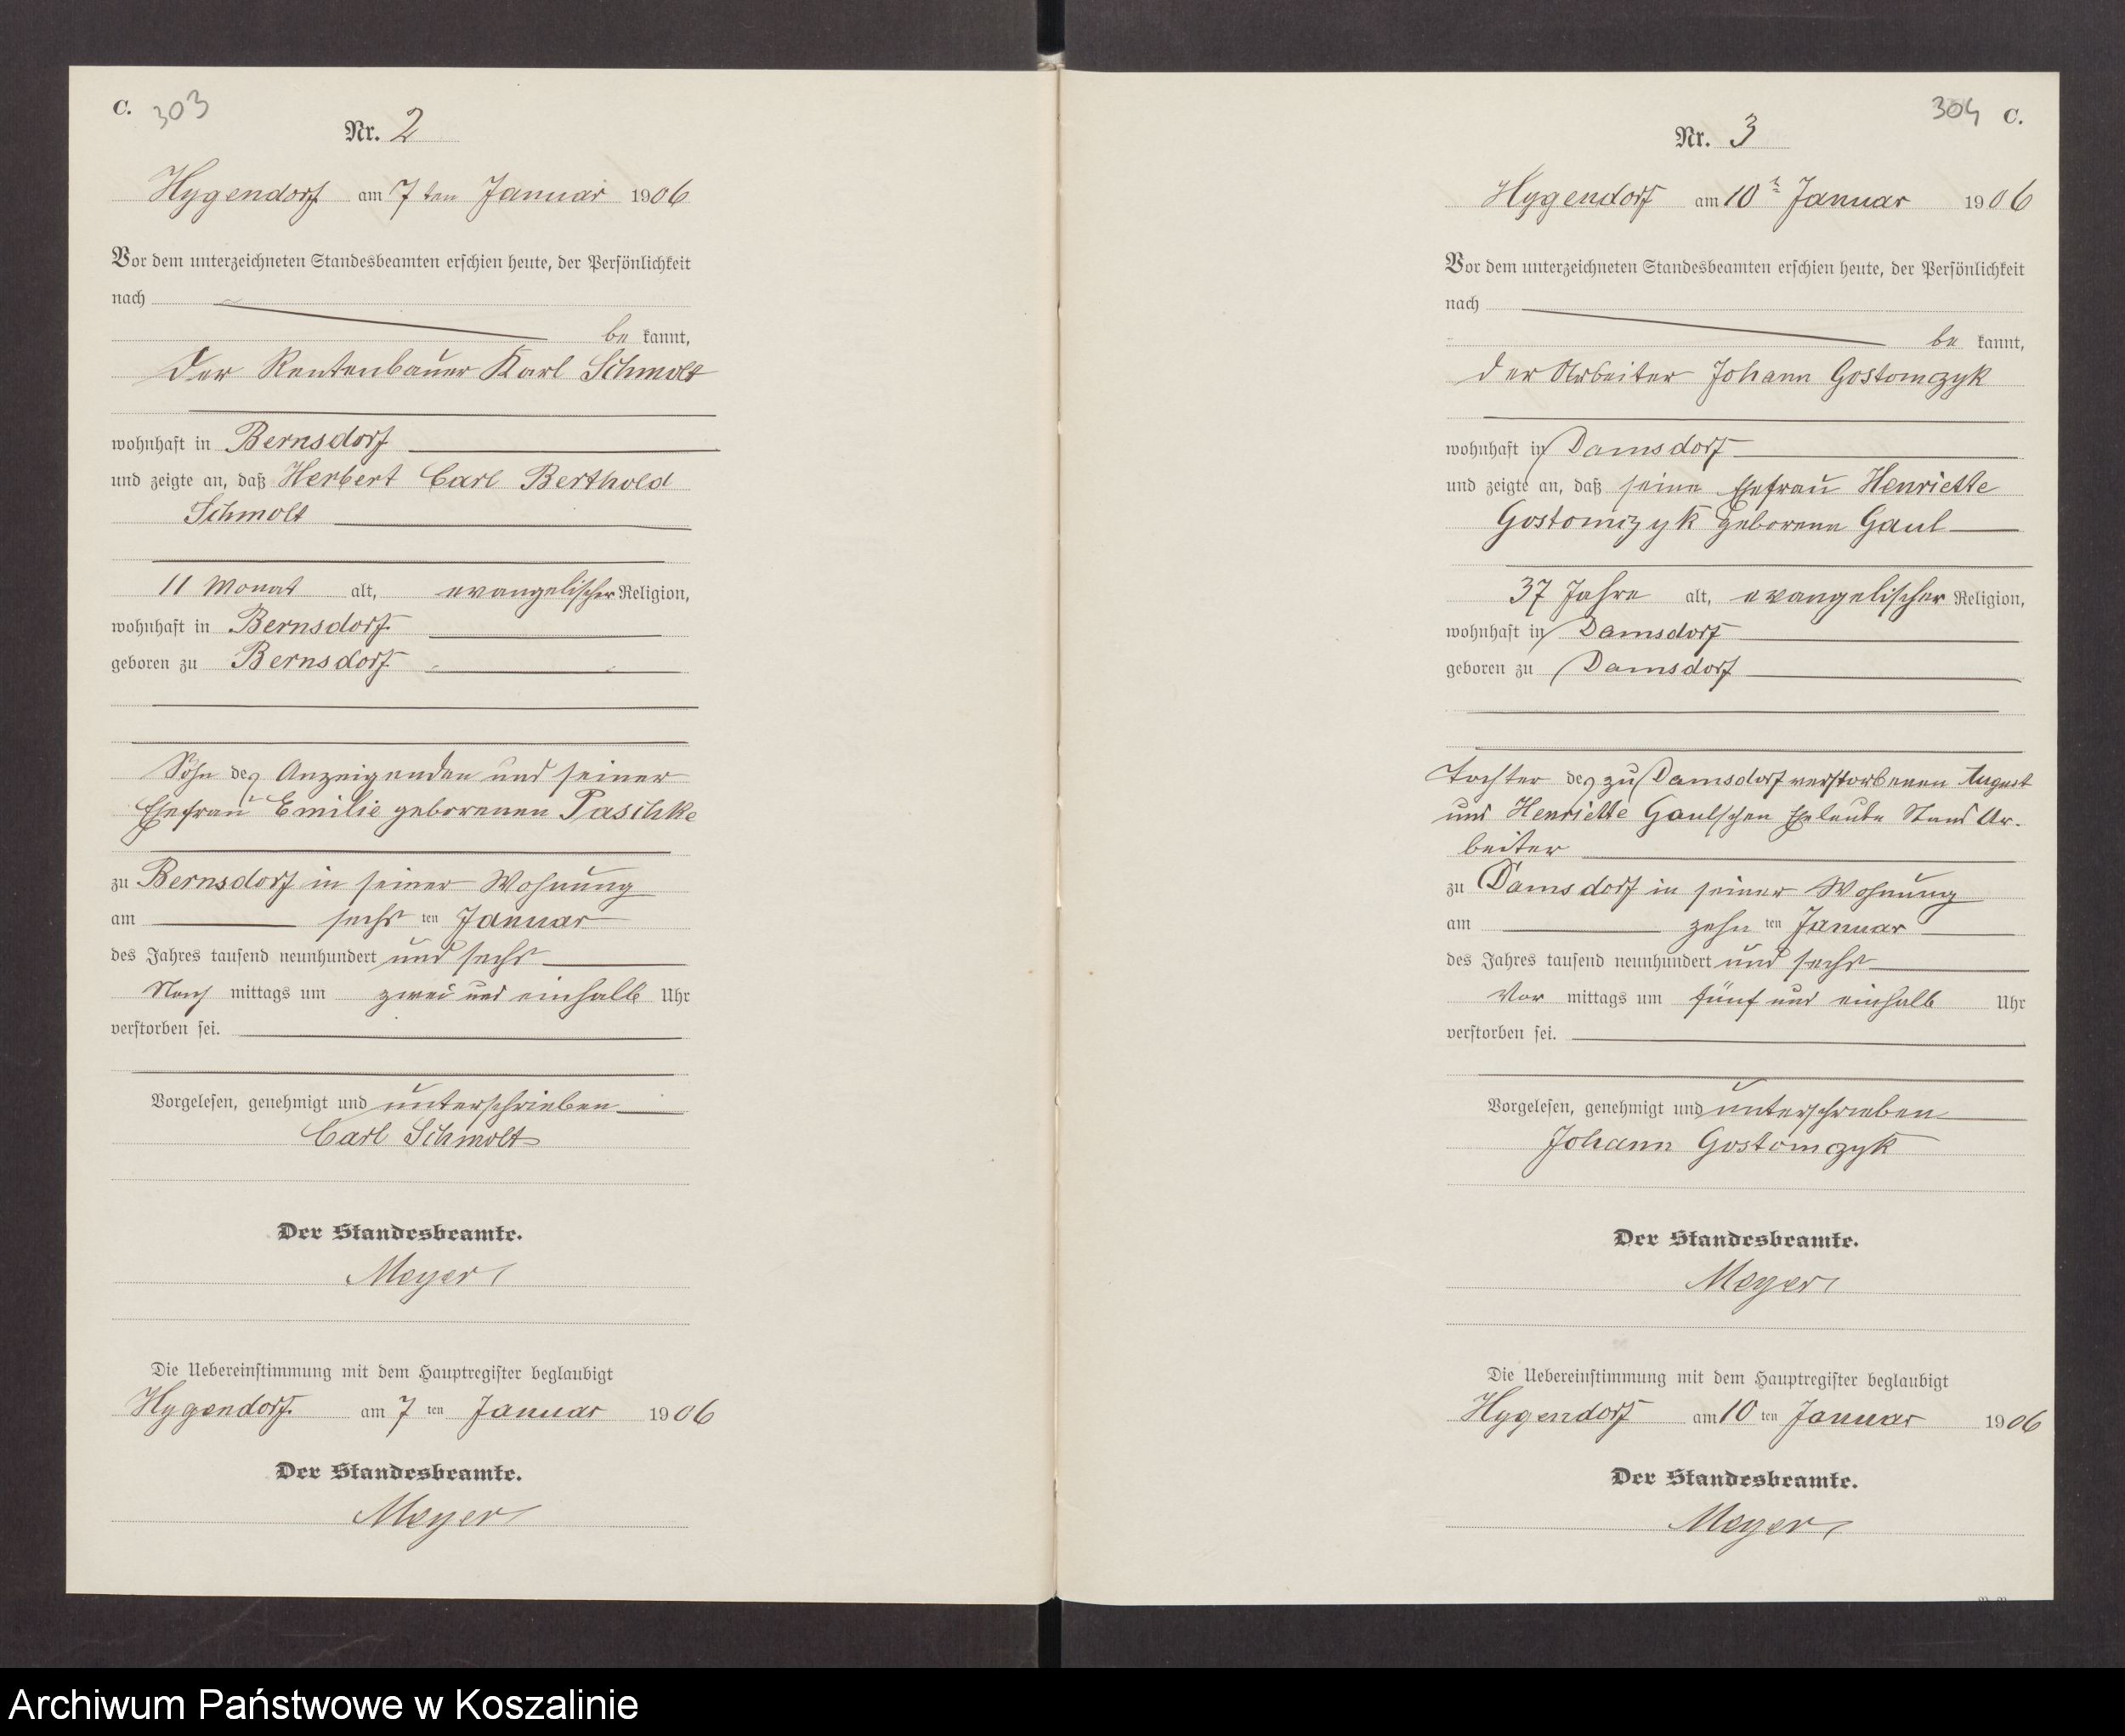 C. 303
Nr. 2
Hygendorf am 7ten Januar 1906
Vor dem unterzeichneten Standesbeamten erschien heute, der Persönlichkeit
nach
be kannt,
der Rentenbauer Karl Schmolt
wohnhaft in Bernsdorf
und zeigte an, daß Herbert Carl Berthold
Schmolt
11 Monat alt, evangelischer Religion,
wohnhaft in Bernsdorf
geboren zu Bernsdorf
Sohn des Anzeigenden und seiner
Ehefrau Emilie geborenen Paschke
zu Bernsdorf in seiner Wohnung
am sechs ten Januar
des Jahres tausend neunhundert und sechs
Nach mittags um zwei und einhalb Uhr
verstorben sei.
Vorgelesen, genehmigt und unterschrieben
Carl Schmolt
Der Standesbeamte.
Meyer
Die Uebereinstimmung mit dem Hauptregister beglaubigt
Hygendorf am 7 ten Januar 1906
Der Standesbeamte.
Meyer
304 C.
Nr. 3
Hygendorf am 10t Januar 1906
Vor dem unterzeichneten Standesbeamten erschien heute, der Persönlichkeit
nach
be kannt,
der Arbeiter Johann Gostomczyk
wohnhaft in Damsdorf
und zeigte an, daß seine Ehefrau Henriette
Gostomczyk geborene Gaul
37 Jahre alt, evangelischer Religion,
wohnhaft in Damsdorf
geboren zu Damsdorf
Tochter des zu Damsdorf verstorbenen August
und Henriette Gaulschen Eheleute Stand Ar-
beiter
zu Damsdorf in seiner Wohnung
am zehn ten Januar
des Jahres tausend neunhundert und sechs
Vor mittags um fünf und einhalb Uhr
verstorben sei.
Vorgelesen, genehmigt und unterschrieben
Johann Gostomczyk
Der Standesbeamte.
Meyer
Die Uebereinstimmung mit dem Hauptregister beglaubigt
Hygendorf am 10 ten Januar 1906
Der Standesbeamte.
Meyer
Archiwum Państwowe w Koszalinie